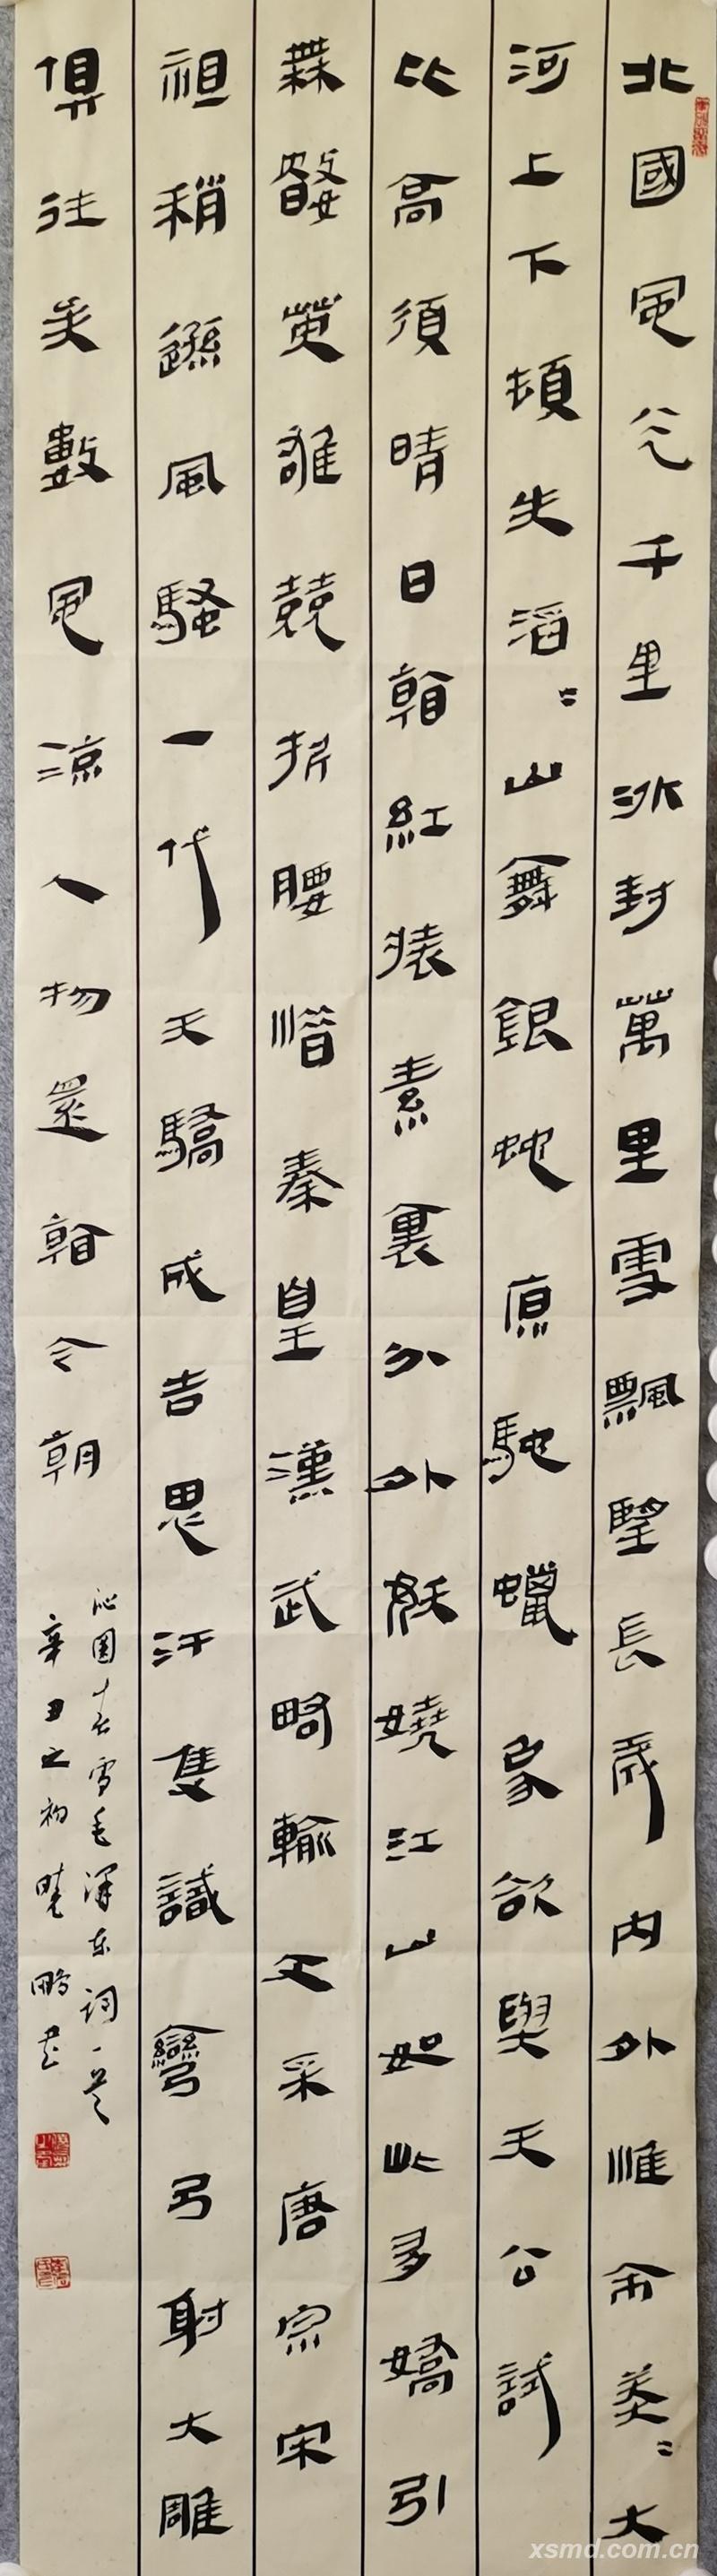 北國風光千里冰封萬里雪飄望長城內外惟余莽〻大
河上下頓失滔〻山舞銀蛇原馳蠟象欲與天公試
比高須晴日看紅裝素裹分外妖嬈江山如此多嬌引
無數英雄競折腰惜秦皇漢武略輸文采唐宗宋
祖稍遜風騷一代天驕成吉思汗隻識彎弓射大雕
俱往矣數風流人物還看今朝
沁園春雪毛澤东詞一首
辛丑之初曉鵬書
xsmd.com.cn